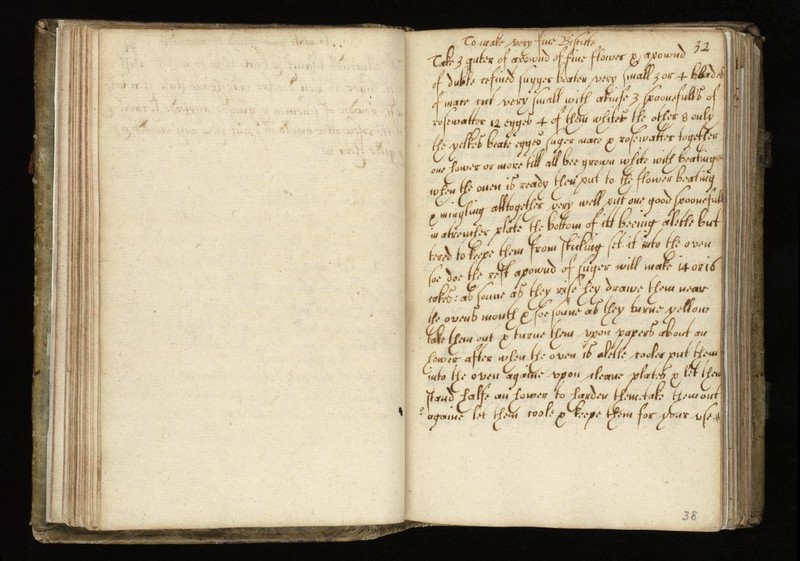 To make very fine Biskitts
32
Take 3 quter of apownd of fine flower & apownd
of duble refined suyger beaten very small 3 or 4 blades
of mace cut very small with aknife 3 spoonefulls of
rosewatter 12 egges 4 of them whites the other 8 only
the yelkes beate egges suger mace & rosewatter together
one hower or more till all bee grown white with beating
when the oven is ready then put to the flower beating
& mingling alltogether very well put one good spoonefull
in atrencher plate the bottom of itt beeing aletle but
tered to keepe them from sticking set it into the oven
soe doe the rest apownd of suger will make 14 or 16
cakes: as soune as they rise hey drawe them neare
the ovens mouth & soe soune as they turne yellow
take them out & turne them upon papers about an
hower after when the oven is aletle cooler put them
into the oven againe upon cleane plates & let them
stand halfe an hower to harden them take them out
againe let them coole & keepe them for your use
38